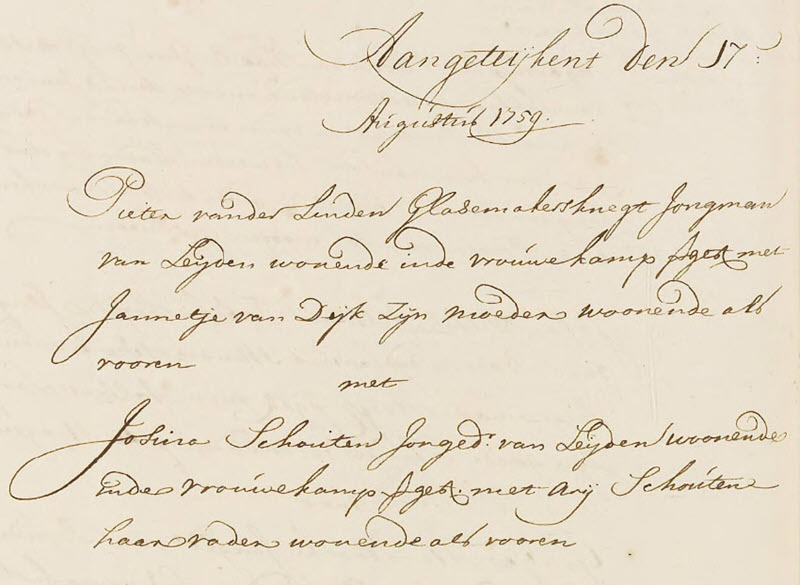 Aangeteijkent den 17:
Augustus 1759.
Pieter vander Linden Glasemakersknegt Jongman
van Leyden wonende inde vrouwekamp sget met
Jannetje van Dijk Zijn moeder woonende als
vooren
met
Josina Schouten Jonged: van Leijden woonende
inde vrouwekamp sget. met Arij Schouten
haar vader wonende als vooren